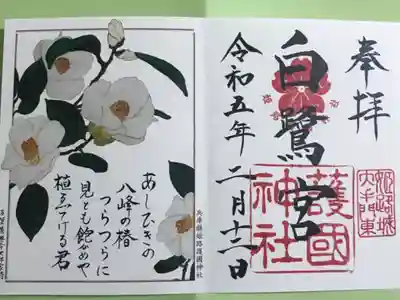 奉拝
白鷺宮
護國
神社
姫路城
大手門東
令和五年二月十二日
兵庫縣姫路護國神社
あしひきの
八峰の椿
つらつらに
見とも飽めや
植ゑてける君